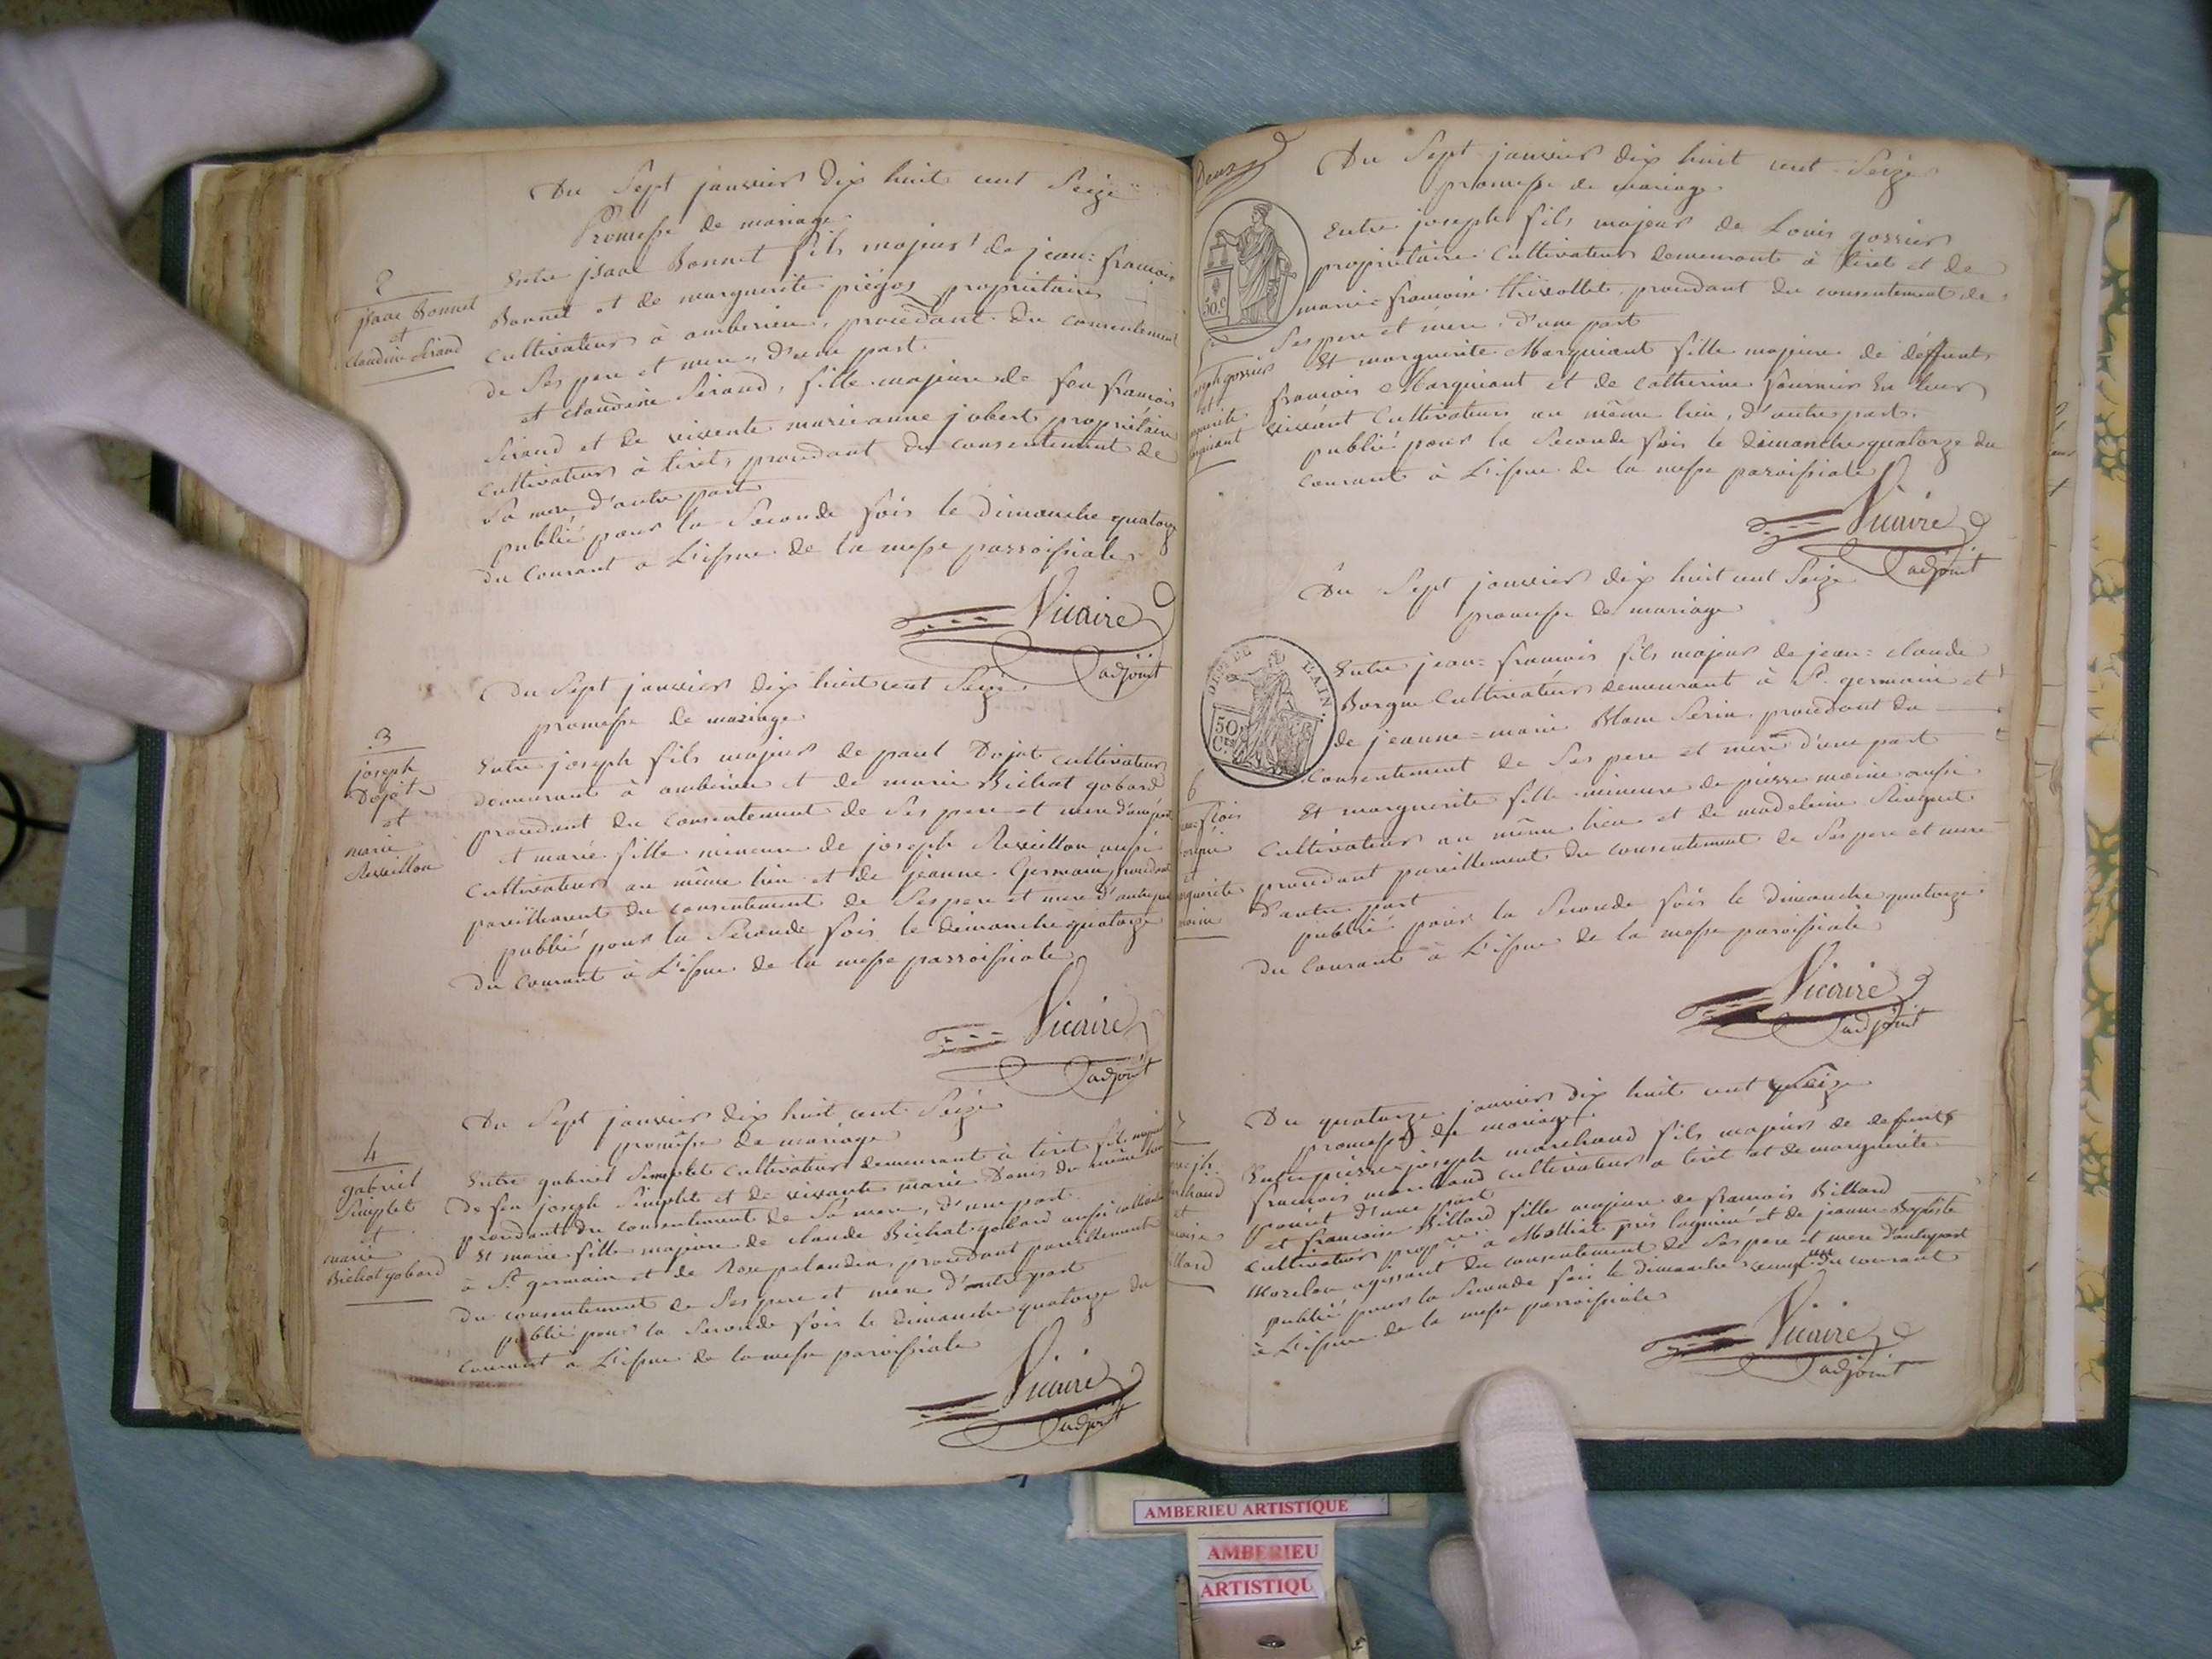 Du Sept janvier dix huit cent Seize
Promesse de mariage
2
isaac Bonnet
et
claudine Siraud
Entre isaac Bonnet fils majeur de jean=francois
Bonnet et de marguerite piégos propriétaires
Cultivateurs à amberieu, procédant du consentement
de Ses pere et mere, d'une part.
et claudine Siraud, fille majeure de feu francois
Siraud et de vivente marieanne jobert propriétaire
Cultivateurs à tiret, procédant du consentement de
Sa mere d'autre part
publié pour la Seconde fois le dimanche quatorze
du Courant a L'issue de la messe parroissiale
Vicaire
adjoint
Du Sept janvier dix huit cent Seize
promesse de mariage
3
joseph
Dojat
et
marie
Reveillon
Entre joseph fils majeur de paul Dojat cultivateur
demeurant à amberieu et de marie Bichat gobard
procédant du Consentement de Ses pere et mere d'une part
et marie fille mineure de joseph Reveillon aussi
Cultivateur au même lieu et de jeanne Germain, procédant
pareillement du consentement de Ses pere et mere d'autre part
publié pour la Seconde fois le dimanche quatorze
du Courant à L'issue de la messe parroissiale
Vicaire
adjoint
Du Sept janvier dix huit cent Seize
promesse de mariage
4
gabriel
Simplet
et
marie
Bichat gobard
Entre gabriel Simplet cultivateur demeurant à tiret fils majeur
de feu joseph Simplet et de vivante marie Denis du même lieu
procédant du consentement de Sa mere, d'une part
Et marie fille majeure de claude Bichat gobard aussi cultivateur
à St germain et de procédant pareillement
du consentement de Ses pere et mere d'autre part
publié pour la Seconde fois le dimanche quatorze du
Courant à L'issue de la messe paroissiale
Vicaire
adjoint
Deux
Du Sept janvier dix huit cent Seize
promesse de mariage
50.c
Entre joseph fils majeur de Louis gossier
propriétaire Cultivateur demeurant à tiret et de
marie=francoise thivollet procédant du consentement de
Ses pere et mere, d'une part
Et marguerite Marguiant fille majeure de deffunts
francois Marguiant et de Catherine fournier En leur
vivant Cultivateurs au même lieu, d'autre part.
publié pour la Seconde fois le dimanche quatorze du
Courant à L'issue de la messe paroissiale
Vicaire
adjoint
Du Sept janvier dix huit cent Seize
promesse de mariage
DEP. DE L'AIN
50
Ces
Entre jean=francois fils majeur de jean=claude
Borgue Cultivateur demeurant à St germain et
de jeanne=marie Blanc Serin procédant du
Consentement de Ses pere et mere d'une part
6
Et marguerite fille mineure de pierre moine aussi
Cultivateur au même lieu et de madeleine
procédant pareillement du consentement de Ses pere et mere
d'autre part
publié pour la Seconde fois le dimanche quatorze
du Courant à L'issue de la messe paroissiale
Vicaire
adjoint
Du quatorze janvier dix huit cent Seize
promesse de mariage
Entre pierre=joseph marchand fils majeur de defunts
francois marchand cultivateur a tiret et de marguerite
d'une part
et francoise Billard fille majeure de francois Billard
Cultivateur propre a Molliat près lagnieu et de jeanne=Baptiste
Morelon agissant du consentement de Ses pere et mere d'autre part
publié pour la Seconde fois le dimanche vingt un du courant
à L'issue de la messe parroissiale
Vicaire
adjoint
AMBERIEU ARTISTIQUE
AMBERIEU
ARTISTIQU